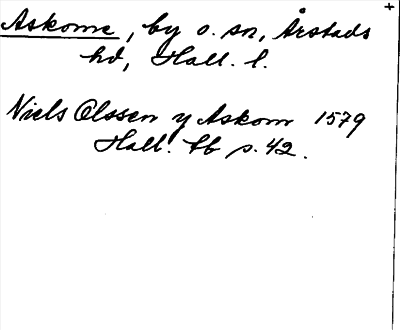 Askome, by o. sn, Årstads
hd, Hall. l.
Niels Olssen y Askom 1579
Hall. tb s. 42.